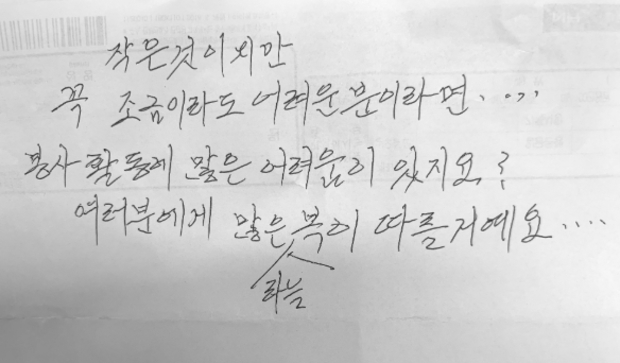 작은것이지만
꼭 조금이라도 어려운 분이라면....
봉사 활동에 많은 어려움이 있지요?
여러분에게 많은 복이 따를거예요....
하늘